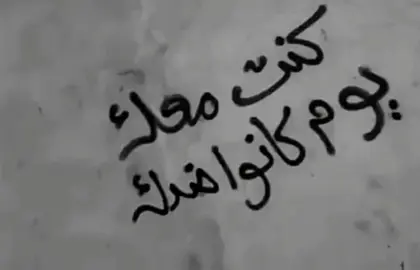 كنت معك
يوم كانوا ضدك